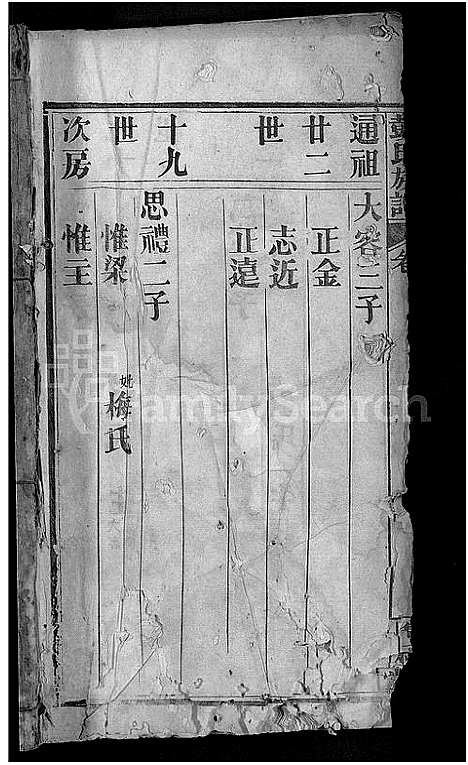 氏族譜
通祖 大容二子
廿二 正金
世 志近
正遠
十九 思禮二子
世 惟梁 妣梅氏
次房 惟王
FamilySearch